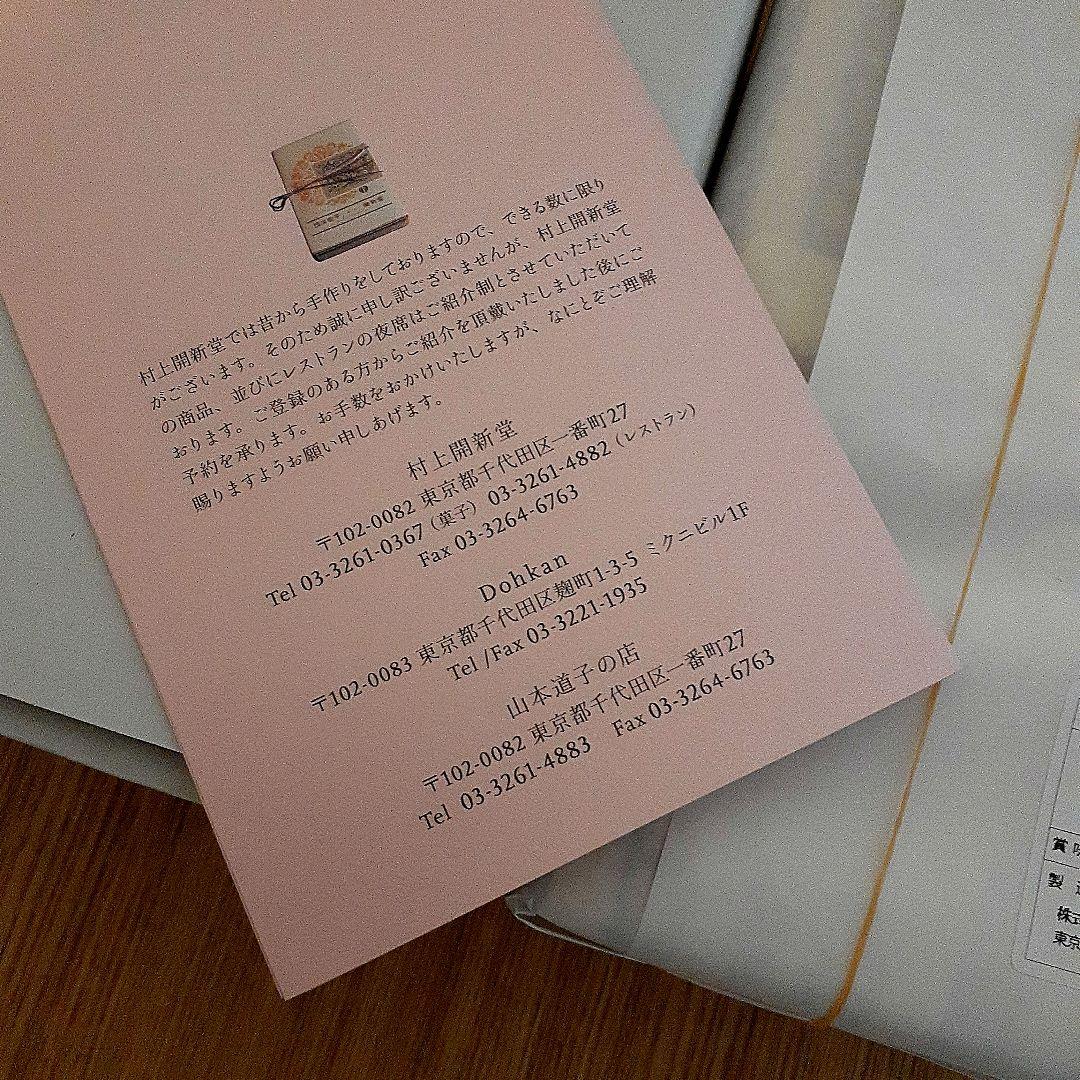 村上開新堂では昔から手作りをしておりますので、できる数に限り
がございます。そのため誠に申し訳ございませんが、村上開新堂
の商品、並びにレストランの夜席はご紹介制とさせていただいて
おります。ご登録のある方からご紹介を頂戴いたしました後にご
予約を承ります。お手数をおかけいたしますが、なにとぞご理解
賜りますようお願い申しあげます。
村上開新堂
〒102-0082 東京都千代田区一番町27
Tel 03-3261-0367（菓子） 03-3261-4882（レストラン）
Fax 03-3264-6763
Dohkan
〒102-0083 東京都千代田区麹町1-3-5 ミクニビル1F
Tel /Fax 03-3221-1935
山本道子の店
〒102-0082 東京都千代田区一番町27
Tel 03-3261-4883 Fax 03-3264-6763
賞
製
株式
東京